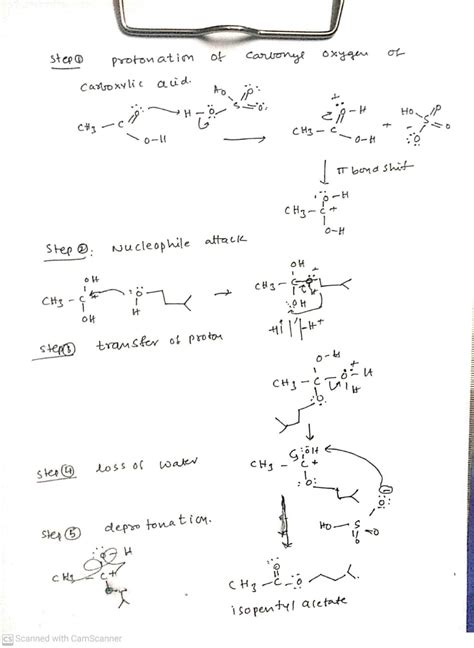 Step ① protonation of carbonyl oxygen of
carboxylic acid.
CH3 - C
O-H
H - O
S
CH3 - C
O-H
O - H
+
HO
S
π bond shift
O - H
CH3 - C +
O-H
Step ②: Nucleophile attack
OH
CH3 - C
OH
O
H
OH
CH3 - C
OH
H+
Step ③ transfer of proton
O-H
CH3 - C - O - H
H
O
Step ④ loss of water
OH
CH3 - C +
O
HO - S = O
O
Step ⑤ deprotonation.
O - H
CH3 - C +
O
CH3 - C - O
isopentyl acetate
CS Scanned with CamScanner